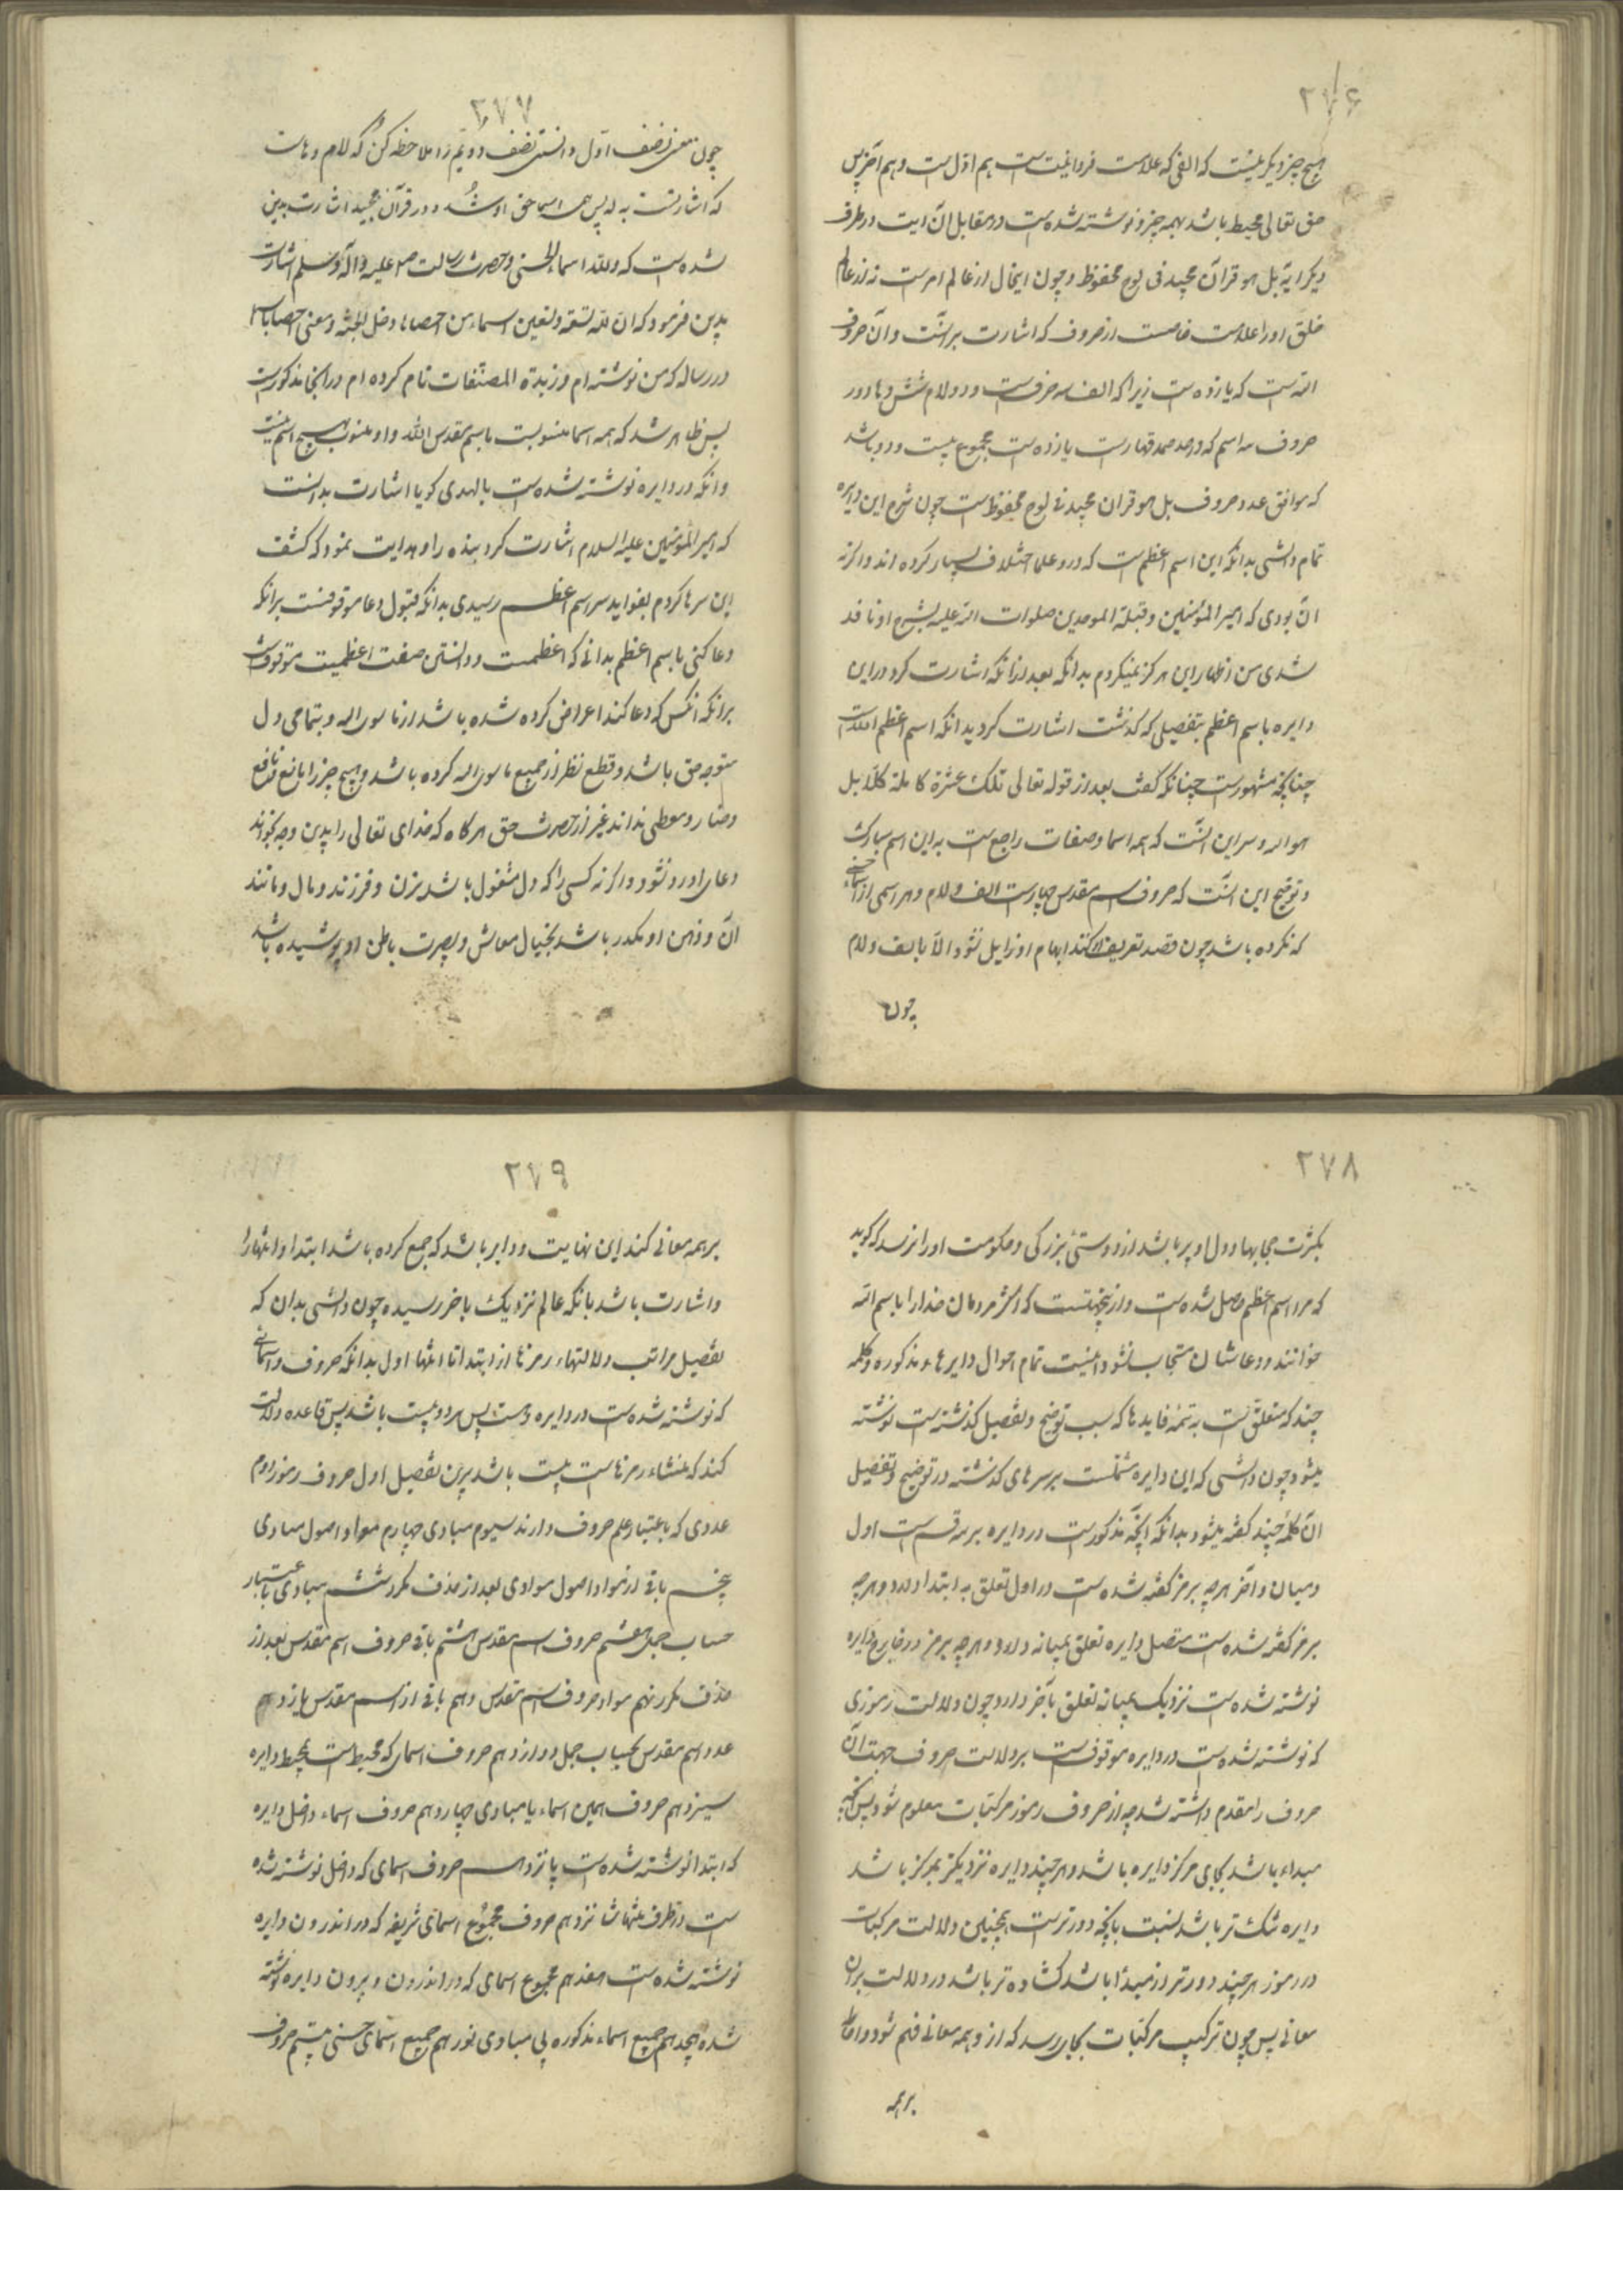 ۲۷۶
هیچ چیز دیگر نیست که الفی که علامت فردانیت است هم اول است و هم آخر پس
حق تعالی محیط باشد بهمه چیز و نوشته شده است در مقابل آن آیت در طرف
دیگر آیة بل هو قرآن مجید فی لوح محفوظ و چون ایخال از عالم امرست نه از عالم
خلق او را علامت خاصست از حروف که اشارت برانست و آن حروف
الله است که یازده است زیرا که الف سه حرف است و دو لام شش و ها دو
حروف سه اسم که واحد صمد قهارست یازده است مجموع بیست و دو باشد
که موافق عدد حروف بل هو قران مجید فی لوح محفوظ است چون شرح این دایره
تمام دانستی بدانکه این اسم اعظم است که درو علما اختلاف بسیار کرده اند و اگر نه
آن بودی که امیر المؤمنین و قبلة الموحدین صلوات الله علیه بشرح او نافذ
شدی من اظهار این هرگز نمیکردم بدانکه بعد از آنکه اشارت کرد در این
دایره باسم اعظم بتفصیلی که گذشت اشارت کرد بدانکه اسم اعظم الله است
چنانچه مشهورست چنانکه گفت بعد از قوله تعالی تلک عشرة کاملة کلا بل
هو الله و سر این آنست که همه اسما و صفات راجع است به این اسم مبارک
و توضیح این آنست که حروف اسم مقدس چهارست الف و لام و هر اسمی از اسماء حسنی
که نکره باشد چون قصد تعریف او کنند ابهام او زایل نشود الا بالف و لام
چون
۲۷۷
چون معنی نصف اول دانستی نصف دویم را ملاحظه کن که لام و هاست
که اشارتست به له پس همه اسما حق او شد و در قرآن مجید اشارت بدین
شده است که و لله اسماء الحسنی و حضرت رسالت صلی علیه و آله و سلم اشارت
بدین فرمود که ان لله تسعة و تسعین اسماء من احصاها دخل الجنة و معنی احصاء
در رساله که من نوشته ام و زبدة المصنفات نام کرده ام در انجا مذکورست
پس ظاهر شد که همه اسما منسوبست باسم مقدس الله و او منسوب بهیچ اسم نیست
و انکه در دایره نوشته شده است بالهدی گویا اشارت بدانست
که امیر المؤمنین علیه السلام اشارت کرد بنده را و هدایت نمود که کشف
این سرها کردم بفواید سر اسم اعظم رسیدی بدانکه قبول دعا موقوفست برانکه
دعا کنی باسم اعظم بدانی که اعظمست و دانستن صفت اعظمیت موقوفست
برانکه انکس که دعا کند اعراض کرده شده باشد از ما سوی الله و بتمامی دل
متوجه حق باشد و قطع نظر از جمیع ما سوی الله کرده باشد و هیچ چیز را مانع و نافع
و ضار و معطی نداند غیر از حضرت حق هرگاه که خدای تعالی را بدین وجه بخواند
دعای او رد نشود و اگر نه کسی را که دل مشغول باشد بزن و فرزند و مال و مانند
آن و ذهن او مکدر باشد بخیال معاش و بصیرت باطن او پوشیده باشد
۲۷۸
بکثرت حجابها و دل او پر باشد از دوستی بزرگی و حکومت او را نرسد که گوید
که مرا اسم اعظم حاصل شده است و از اینجهتست که اکثر مردمان خدا را باسم الله
خوانند و دعا شان مستجاب نشود اینست تمام احوال دایرهاء مذکوره و کلمه
چند که متعلق است به تتمه فایدها که سبب توضیح و تفصیل گذشته است نوشته
میشود چون دانستی که این دایره مشتملست بر سرهای گذشته در توضیح و تفصیل
آن کلمه چند گفته میشود بدانکه آنچه مذکورست در دایره بر سه قسم است اول
و میان و آخر هرچه برمز گفته شده است در اول تعلق به ابتدا دارد و هرچه
برمز گفته شده است متصل دایره تعلق بمیانه دارد و هرچه برمز در خارج دایره
نوشته شده است نزدیک بمیانه تعلق بآخر دارد و چون دلالت رموزی
که نوشته شده است در دایره موقوف است بر دلالت حروف جهت آن
حروف را مقدم داشته شد چه از حروف رموز مرکبات معلوم شود پس آنچه
مبداء باشد بجای مرکز دایره باشد و هر چند دایره نزدیکتر بمرکز باشد
دایره تنگ تر باشد نسبت بانچه دورترست همچنین دلالت مرکبات
در رموز هر چند دورتر از مبدأ باشد گشاده تر باشد در دلالت بران
معانی پس چون ترکیب مرکبات بجای رسد که از و همه معانی فهم شود و احاطه
بر همه
۲۷۹
بر همه معانی کند این نهایت دوایر باشد که جمع کرده باشد ابتدا و انتها را
و اشارت باشد بانکه عالم نزدیک باخر رسیده چون دانستی بدان که
تفصیل مراتب دلالتهاء رمزها از ابتدا تا انتها اول بدانکه حروف و اسمائی
که نوشته شده است در دایره و است پس بر دو بیست باشد پس قاعده دلالت
کند که منشاء رمزهاست بیست باشد برین تفصیل اول حروف رموز دوم
عددی که باعتبار علم حروف دارند سیوم مبادی چهارم مواد اصول مبادی
پنجم باقی از مواد اصول موادی بعد از حذف مکرر ششم مبادی باعتبار
حساب جمل هفتم حروف اسم مقدس هشتم باقی حروف اسم مقدس بعد از
حذف مکرر نهم مواد حروف اسم مقدس دهم باقی از اسم مقدس یازدهم
عدد اسم مقدس بحساب جمل دوازدهم حروف اسمای که محیط است بمحیط دایره
سیزدهم حروف همین اسماء با مبادی چهاردهم حروف اسماء داخل دایره
که ابتدا نوشته شده است پانزدهم حروف اسمای که داخل نوشته شده
است در طرف منتها شانزدهم حروف مجموع اسمای شریفه که در اندرون دایره
نوشته شده است هفدهم مجموع اسمای که در اندرون و بیرون دایره نوشته
شده هیجدهم جمیع اسماء مذکوره بی مبادی نوزدهم جمیع اسمای حسنی بیستم حروف